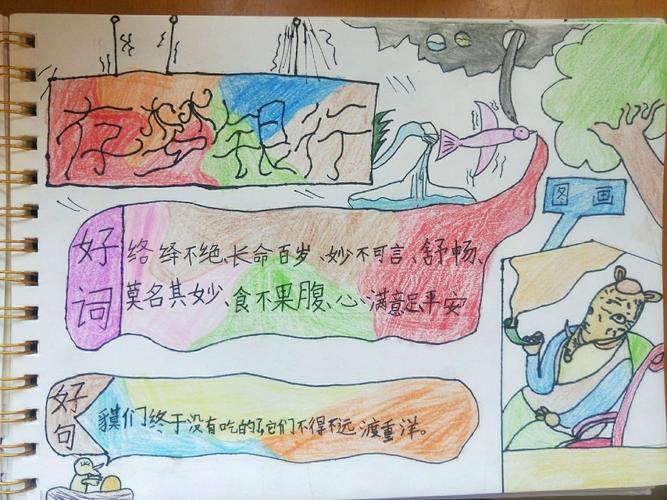 图画
好词
络绎不绝、长命百岁、妙不可言、舒畅、
莫名其妙、食不果腹、心满意足、平安
好句
貘们终于没有吃的了,它们不得不远渡重洋。